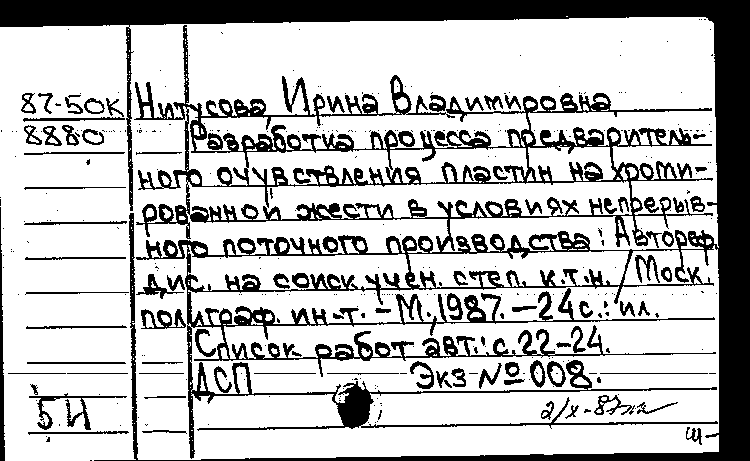 87-50К Нитусова, Ирина Владимировна.
8880 Разработка процесса предваритель-
ного очувствления пластин на хроми-
рованной жести в условиях непрерыв-
ного поточного производства: Автореф.
дис. на соиск. учен. степ. к.т.н. / Моск.
полиграф. ин-т. - М., 1987. - 24 с.: ил.
Список работ авт.: с. 22-24.
ДСП Экз № 008.
БИ
2/х-87
Ш-